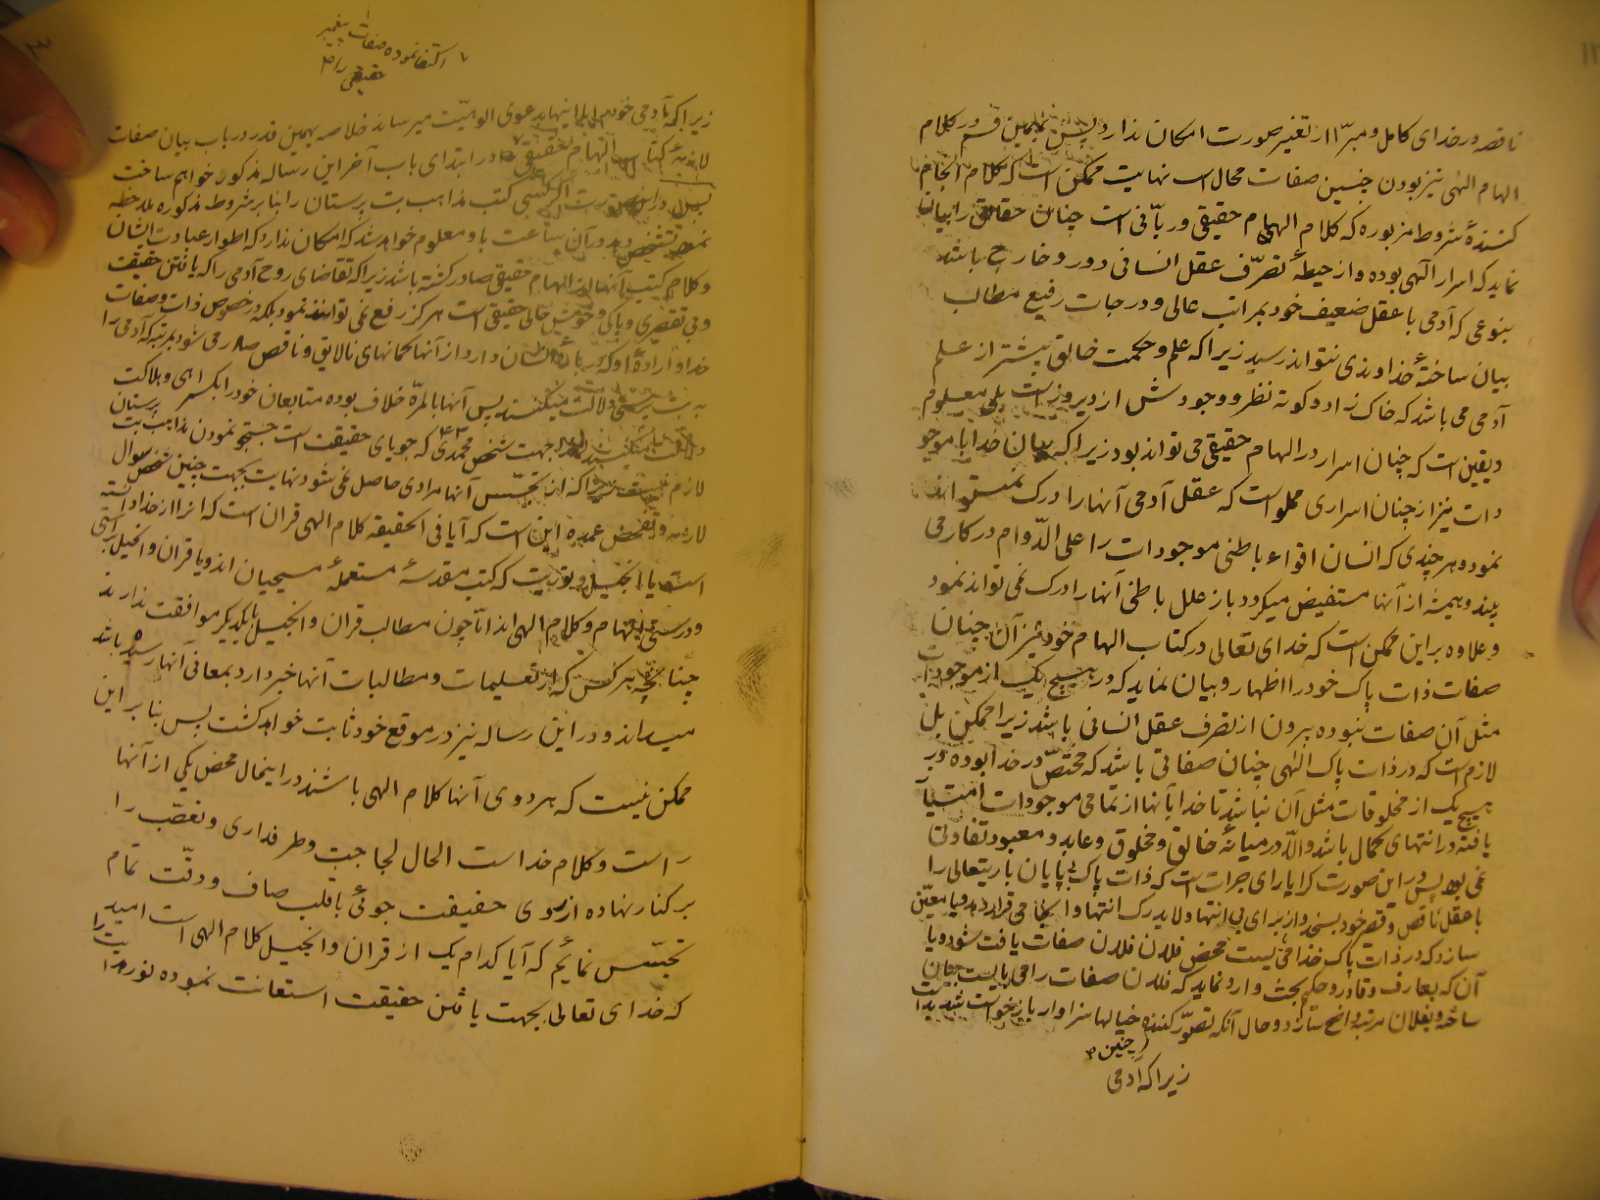 ناقصه در خدای کامل و مبرّا از تغیر صورت امکان ندارد پس بهمین قسم در کلام
الهام الهی نیز بودن چنین صفات محال است نهایت ممکن است که کلام انجام
کنندهٔ شروط مزبوره که کلام الهام حقیقی و ربّانی است چنان حقایق را بیان
نماید که اسرار الهی بوده و از حیطهٔ تصرّف عقل انسانی دور و خارج باشد
بنوعی که آدمی با عقل ضعیف خود بمراتب عالی و درجات رفیع مطالب
بیان ساختهٔ خداوندی نتواند رسید زیرا که علم و حکمت خالق بیشتر از علم
آدمی می باشد که خاک نژاد و کوته نظر و وجودش از دیروز است بلی معلوم
و یقین است که چنان اسرار در الهام حقیقی می تواند بود زیرا که بیان خدا با موجو
دات نیز از چنان اسراری مملو است که عقل آدمی آنها را درک نمیتواند
نمود و هر چندی که انسان اقواء باطنی موجودات را علی الدّوام در کار می
بیند و همیشه از آنها مستفیض میگردد باز علل باطنی آنها را درک نمی تواند نمود
و علاوه بر این ممکن است که خدای تعالی در کتاب الهام خود نیز آن چنان
صفات ذات پاک خود را اظهار و بیان نماید که در هیچ یک از موجودات
مثل آن صفات نبوده بیرون از تصرف عقل انسانی باشد زیرا ممکن بل
لازم است که در ذات پاک الهی چنان صفاتی باشد که مختصّ در خدا بوده در
هیچ یک از مخلوقات مثل آن نباشد تا خدا بآنها از تمامی موجودات امتیاز
یافته در انتهای کمال باشد والّا در میانهٔ خالق و مخلوق و عابد و معبود تفاوتی
نمی بود پس در این صورت کرا یارای جرات است که ذات پاک بی پایان باریتعالی را
با عقل ناقص و قصیر خود بسنجد و از برای بی انتها و لایدرک انتها و ایجا می قرار دهد و یا معیّن
سازد که در ذات پاک خدا می بیست محض فلان فلان صفات یافت شود و یا
آن که بعارف و قادر و حکیم بحث وارد نماید که فلان صفات را می بایست چنان
ساخته و بفلان مرتبه واضح سازد و حال آنکه تصوّر کننده خیالها سزاوار بازخواست شدید است
چنین
زیرا که آدمی
اکتفا نموده صفات پیغمبر
حقیقی را
زیرا که آدمی خود را با اینها بدعوی الوهیّت میرساند خلاصه بهمین قدر در باب بیان صفات
لازمهٔ کتاب الهام حقیقی در ابتدای باب آخر این رساله مذکور خواهیم ساخت
پس در این صورت اگر کسی کتب مذاهب بت پرستان را بنا بر شروط مذکوره ملاحظه
نموده تفحص دهد در آن ساعت باو معلوم خواهد شد که امکان ندارد که اطوار عبادت ایشان
و کلام کتب آنها از الهام حقیقی صادر گشته باشد زیرا که تقاضای روح آدمی را که یافتن حقیقت
و بی تقصیری و پاکی و خوش حالی حقیقی است هرگز رفع نمی توانند نمود بلکه در خصوص ذات و صفات
خدا و ارادهٔ او که در بارهٔ انسان دارد از آنها گمانهای نالایق و ناقص صادر می شود بمرتبه که آدمی را
به بت پرستی دلالت میکنند پس آنها بالمرّه خلاف بوده متابعان خود را بگمراهی و هلاکت
جهت شخص محمّدی که جویای حقیقت است جستجو نمودن مذاهب بت پرستان
لازم نیست چرا که از تجسّس آنها مرادی حاصل نمی شود نهایت بجهت چنین شخص سوال
لازمه و تفحص عمده این است که آیا فی الحقیقه کلام الهی قران است که انرا از خدا دانسته
است یا انجیل و توریت که کتب مقدسهٔ مستعملهٔ مسیحیان اند و یا قران و انجیل براستی
و درستی الهام و کلام الهی اند امّا چون مطالب قران و انجیل با یکدیگر موافقت ندارند
چنانچه هر کس که از تعلیمات و مطالبات آنها خبر دارد بمعانی آنها رسیده باشد
میداند و در این رساله نیز در موقع خود ثابت خواهد گشت پس بنا بر این
ممکن نیست که هر دوی آنها کلام الهی باشند در اینحال محض یکی از آنها
راست و کلام خدا است الحال لجاجت و طرفداری و تعصّب را
بر کنار نهاده از روی حقیقت جوئی با قلب صاف و دقّت تمام
تجسّس نمائیم که آیا کدام یک از قران و انجیل کلام الهی است امید
که خدای تعالی بجهت یافتن حقیقت استعانت نموده نور هدایت را